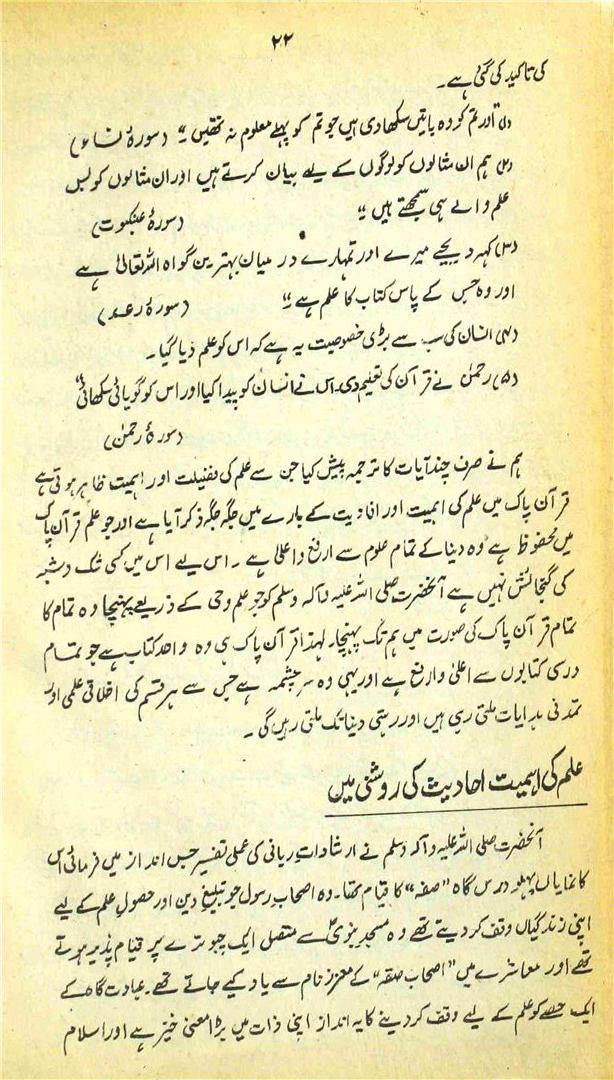 ۲۲
کی تاکید کی گئی ہے۔
(۱) اور تم کو وہ باتیں سکھا دی ہیں جو تم کو پہلے معلوم نہ تھیں" (سورۂ نساء)
(۲) ہم ان مثالوں کو لوگوں کے لیے بیان کرتے ہیں اور ان مثالوں کو بس
علم والے ہی سمجھتے ہیں"
(سورۂ عنکبوت)
(۳) کہہ دیجیے میرے اور تمہارے درمیان بہترین گواہ اللہ تعالیٰ ہے
اور وہ جس کے پاس کتاب کا علم ہے" (سورۂ رعد)
(۴) انسان کی سب سے بڑی خصوصیت یہ ہے کہ اس کو علم دیا گیا۔
(۵) رحمٰن نے قرآن کی تعلیم دی۔ اس نے انسان کو پیدا کیا اور اس کو گویائی سکھائی"
(سورۂ رحمٰن)
ہم نے صرف چند آیات کا ترجمہ پیش کیا جن سے علم کی فضیلت اور اہمیت ظاہر ہوتی ہے
قرآن پاک میں علم کی اہمیت اور افادیت کے بارے میں جگہ جگہ ذکر آیا ہے اور جو علم قرآن پاک
میں محفوظ ہے وہ دنیا کے تمام علوم سے ارفع و اعلیٰ ہے۔ اس لیے اس میں کسی شک و شبہ
کی گنجائش نہیں ہے آنحضرت صلی اللہ علیہ وآلہ وسلم کو جو علم وحی کے ذریعے پہنچا وہ تمام کا
تمام قرآن پاک کی صورت میں ہم تک پہنچا۔ لہٰذا قرآن پاک ہی وہ واحد کتاب ہے جو تمام
درسی کتابوں سے اعلیٰ و ارفع ہے اور یہی وہ سرچشمہ ہے جس سے ہر قسم کی اخلاقی علمی اور
تمدنی ہدایات ملتی رہی ہیں اور رہتی دنیا تک ملتی رہیں گی۔
علم کی اہمیت احادیث کی روشنی میں
آنحضرت صلی اللہ علیہ وآلہ وسلم نے ارشادات ربانی کی عملی تفسیر جس انداز میں فرمائی اس
کا نمایاں پہلو درس گاہ "صفہ" کا قیام تھا۔ وہ اصحاب رسول جو تبلیغ دین اور حصول علم کے لیے
اپنی زندگیاں وقف کر دیتے تھے وہ مسجد نبوی سے متصل ایک چبوترے پر قیام پذیر ہوتے
تھے اور معاشرے میں "اصحاب صفہ" کے معزز نام سے یاد کیے جاتے تھے۔ عبادت گاہ کے
ایک حصے کو علم کے لیے وقف کر دینے کا یہ انداز اپنی ذات میں بڑا معنی خیز ہے اور اسلام